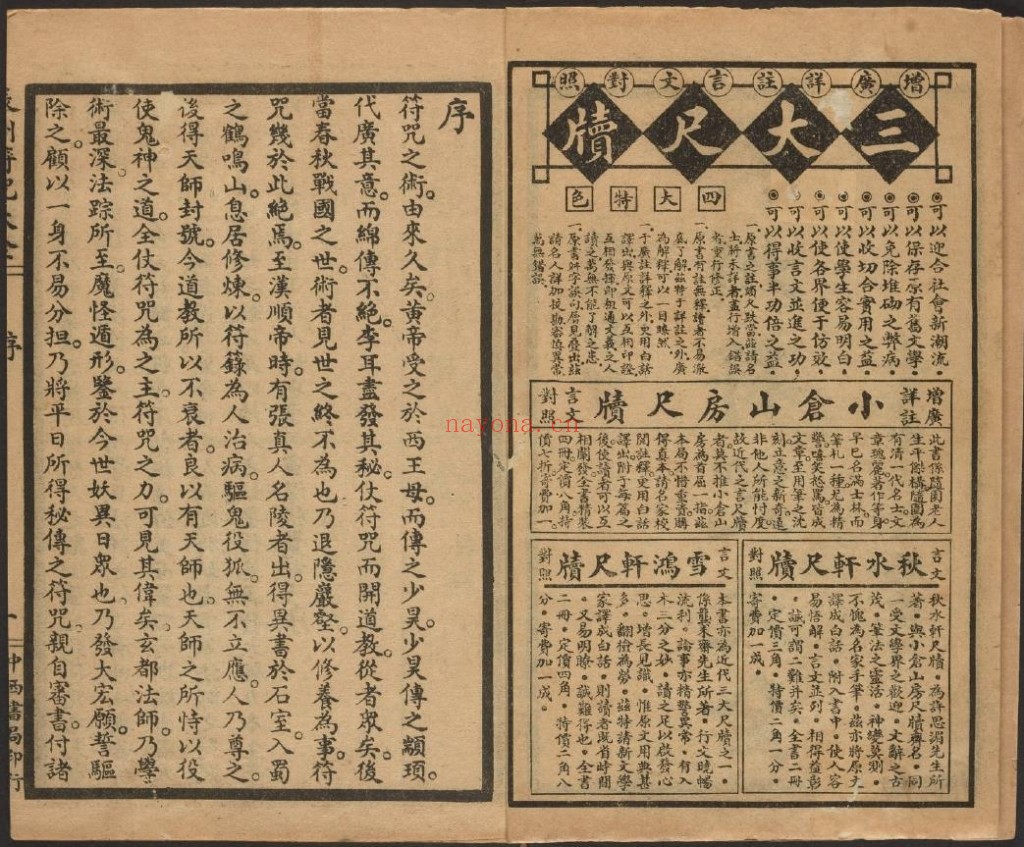 增廣詳註言文對照
三大尺牘
◉可以迎合社會新潮流
◉可以保存原有舊文學
◉可以免除堆砌之弊病
◉可以收切合實用之益
◉可以使學生容易明白
◉可以使各界便于仿效
◉可以收言文並進之功
◉可以得事半功倍之益
四大特色
增廣詳註
小倉山房尺牘
言文對照
此書係隨園老人
生平傑構隨園為
有清一代名士文
章瑰麗著作等身
早已名滿士林而
筆札一種尤為精
警嘻笑怒罵皆成
文章至用筆之沈
刻立意之新奇遠
非他人所能忖度
故近代之言尺牘
者莫不推小倉山
房為首屈一指茲
本局不惜重資購
得真本請名家校
閱註釋更用白話
譯出附于每篇之
後使讀者可以互
相闡發全書精裝
四冊定價八角特
價七折寄費加一
言文對照
秋水軒尺牘
秋水軒尺牘。為許思湄先生所
著。與小倉山房尺牘齊名。同
一受文學界之歡迎。文辭之古
茂。筆法之靈活。神變莫測。
不愧為名家手筆。茲亦將原文
譯成白話。附入書中。使人容
易悟解。言文並列。相得益彰
。誠可謂二難并矣。全書二冊
。定價三角。特價二角一分。
寄費加一成。
言文對照
雪鴻軒尺牘
本書亦為近代三大尺牘之一。
係龔未齋先生所著。行文曉暢
流利。論事亦精警異常。有入
木三分之妙。讀之足以啟發心
思。增長見識。惟原文用典甚
多。翻檢為勞。茲特請新文學
家譯成白話。則讀者既省時間
。又易明瞭。誠難得也。全書
二冊。定價四角。特價二角八
分。寄費加一成。
序
符咒之術。由來久矣。黃帝受之於西王母。而傳之少昊。少昊傳之顓頊。
代廣其意。而綿傳不絕。李耳盡發其秘。仗符咒而開道教。從者眾矣。後
當春秋戰國之世。術者見世之終不為也。乃退隱嚴壑。以修養為事。符
咒幾於此絕焉。至漢順帝時。有張真人名陵者。出得異書於石室。入蜀
之鶴鳴山。息居修煉。以符籙為人治病。驅鬼役狐。無不立應。人乃尊之。
後得天師封號。今道教所以不衰者。良以有天師也。天師之所恃以役
使鬼神之道。全仗符咒為之主。符咒之力。可見其偉矣。玄都法師。乃學
術最深。法踪所至。魔怪遁形。鑒於今世妖異日眾也。乃發大宏願。誓驅
除之。顧以一身不易分担。乃將平日所得秘傳之符咒。親自審書。付諸
序
一
中西書局印行
nayona.cn